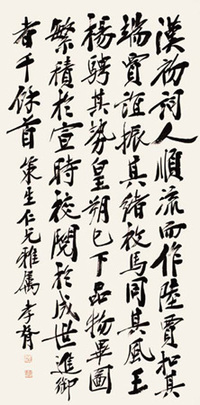 漢初詞人順流而作陸賈扣其
端賈誼振其緒枚馬同其風王
楊騁其勢皇朔已下品物畢圖
繁積於宣時校閱於成世進御
者千餘首 策生仁兄雅属 孝胥